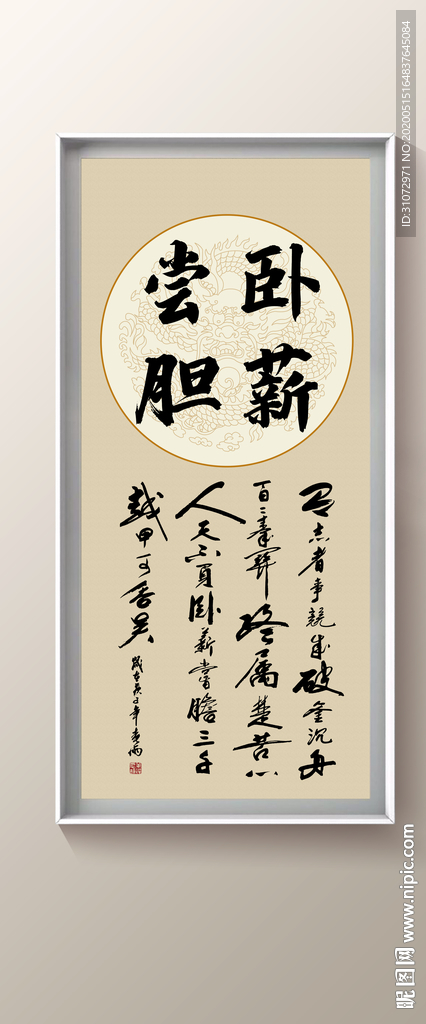 卧薪
尝胆
有志者事競成破釜沉舟
百二秦關終属楚苦心
人天不負卧薪嘗膽三千
越甲可吞吴
歲在庚子年
ID:31072971 NO:20200515164837645084
昵图网 www.nipic.com